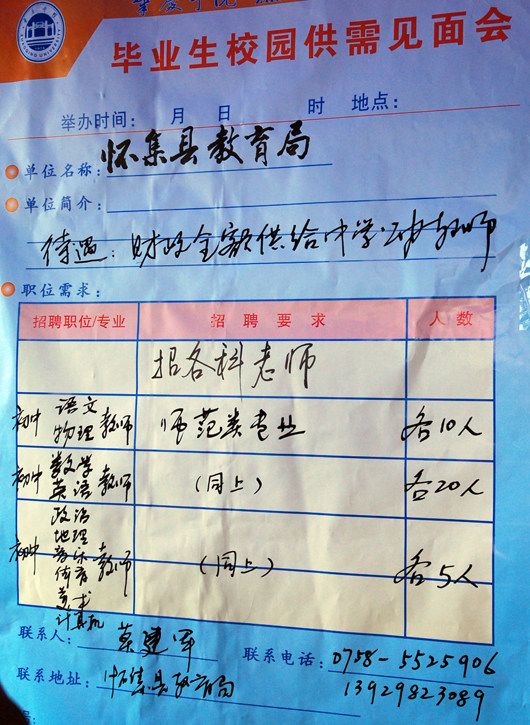 肇庆学院
毕业生校园供需见面会
举办时间: 月 日 时 地点:
单位名称: 怀集县教育局
单位简介:
待遇: 财政全额供给中学 教师
职位需求:
招聘职位/专业 招聘要求 人数
招各科老师
初中 语文 物理 教师 师范类专业 各10人
初中 数学 英语 教师 (同上) 各20人
初中 政治 地理 音乐 体育 美术 计算机 教师 (同上) 各5人
联系人: 莫建军 联系电话: 0758-5525906
联系地址: 怀集县教育局 13929823089